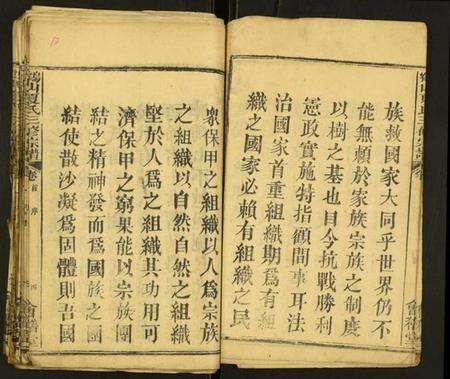 族救國家大同乎世界仍不
能無賴於家族宗族之制度
以樹之基也目今抗戰勝利
憲政實施特指顧間事耳法
治國家首重組織期為有組
織之國家必賴有組織之民
眾保甲之組織以人為宗族
之組織以自然自然之組織
堅於人為之組織其功用可
濟保甲之窮果能以宗族團
結之精神發而為國族之團
結使散沙凝為固體則吾國
氏三修宗譜
卷首 序